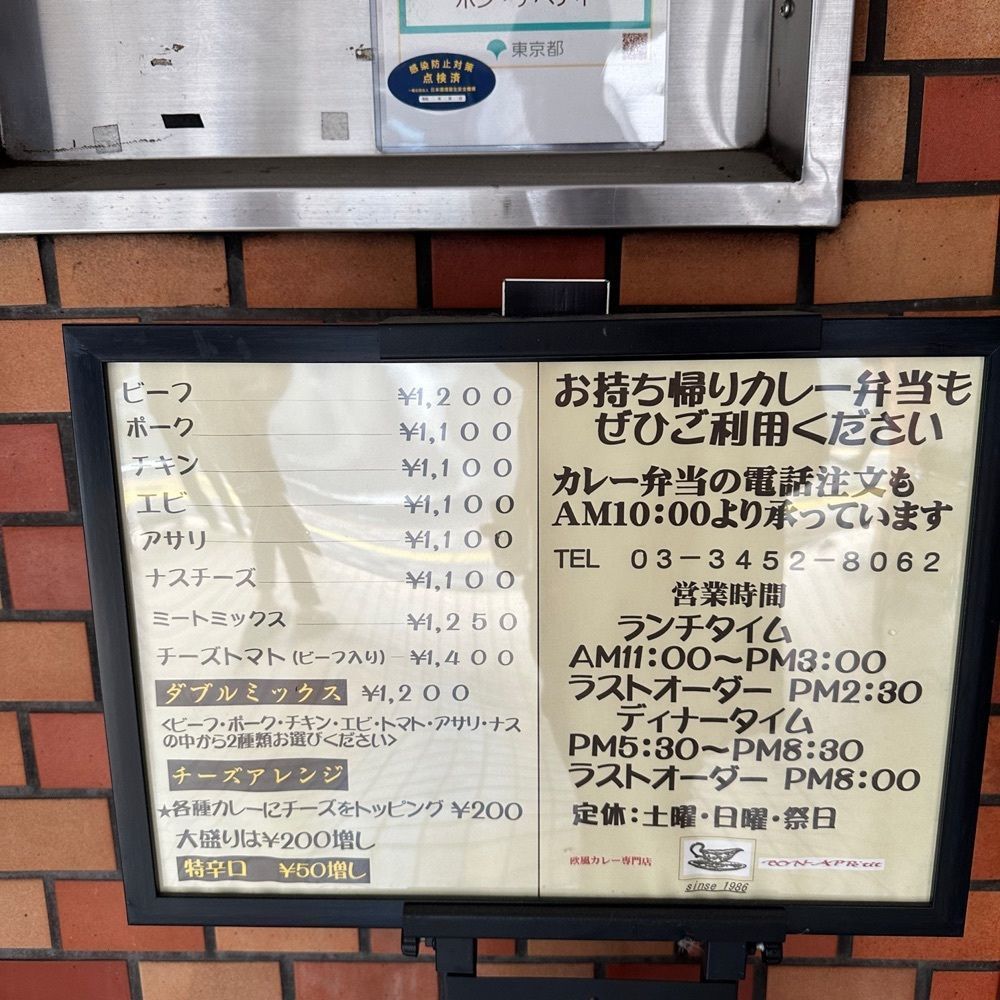 東京都
感染防止対策
点検済
ビーフ ¥1,200
ポーク ¥1,100
チキン ¥1,100
エビ ¥1,100
アサリ ¥1,100
ナスチーズ ¥1,100
ミートミックス ¥1,250
チーズトマト(ビーフ入り) ¥1,400
ダブルミックス ¥1,200
<ビーフ・ポーク・チキン・エビ・トマト・アサリ・ナス
の中から2種類お選びください>
チーズアレンジ
★各種カレーにチーズをトッピング ¥200
大盛りは¥200増し
特辛口 ¥50増し
お持ち帰りカレー弁当も
ぜひご利用ください
カレー弁当の電話注文も
AM10:00より承っています
TEL 03-3452-8062
営業時間
ランチタイム
AM11:00~PM3:00
ラストオーダー PM2:30
ディナータイム
PM5:30~PM8:30
ラストオーダー PM8:00
定休:土曜・日曜・祭日
欧風カレー専門店
sinse 1986